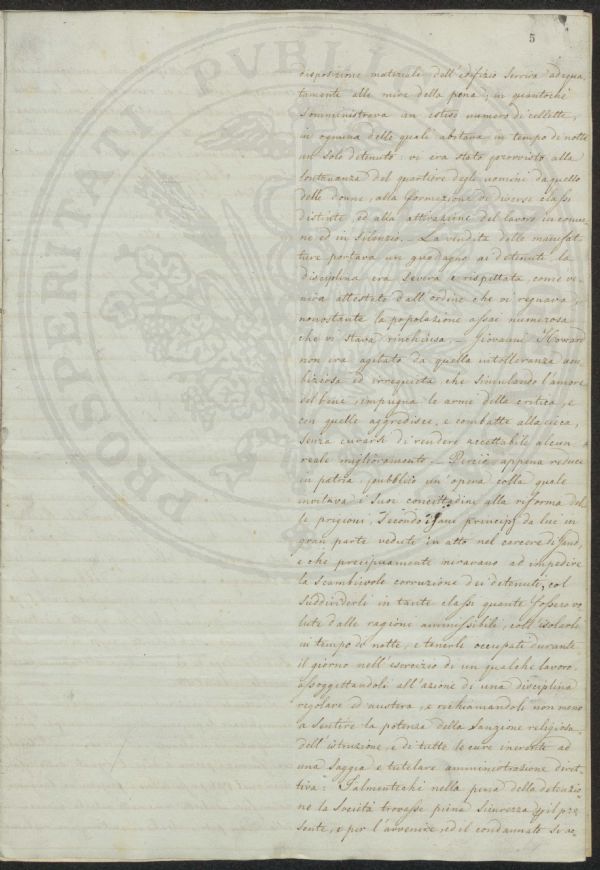 5
PROSPERITATI PVBLICAE
disposizione materiale dell'edifizio serviva adequa,
tamente alle mire della pena, in quantochè
somministrava un esteso numero di cellette,
in ognuna delle quali abitava in tempo di notte
un solo detenuto: vi era stato provvisto alla
lontananza del quartiere degli uomini da quello
delle donne, alla formazione di diverse classi
distinte, ed alla attivazione del lavoro in comu,
ne ed in silenzio. La vendita delle manifat,
ture portava un guadagno ai detenuti: la
disciplina era severa e rispettata, come ve,
niva attestato dall'ordine che vi regnava,
nonostante la popolazione assai numerosa
che vi stava rinchiusa. Giovanni Howard
non era agitato da quella intolleranza am
biziosa ed irrequieta che simulando l'amore
del bene, impugna le arme della critica, e
con quelle aggredisce, e combatte alla cieca,
senza curarsi di rendere accettabile alcun
reale miglioramento. Perciò, appena reduce
in patria, pubblicò un'opera colla quale
invitava i suoi concittadini alla riforma del
le prigioni, secondo i sani principj da lui in
gran parte veduti in atto nel carcere di Gand,
e che precipuamente miravano ad impedire
la scambievole corruzione dei detenuti, col
suddividerli in tante classi quante fossero vo
lute dalle ragioni ammissibili, coll'isolarli
in tempo di notte, e tenerli occupati durante
il giorno nell'esercizio di un qualche lavoro,
assoggettandoli all'azione di una disciplina
regolare ed austera, e richiamandoli non meno
a sentire la potenza della sanzione religiosa,
dell'istruzione, e di tutte le cure inerenti ad
una saggia e tutelare amministrazione diret
tiva: Talmentechè nella pena della detenzio,
ne la Società trovasse piena sicurezza pel pre
sente, e per l'avvenire, ed il condannato si ac,